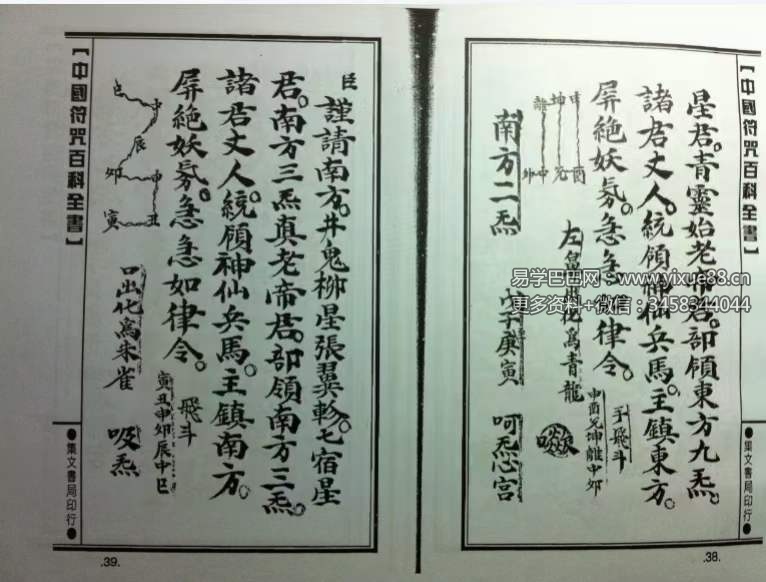 【中國符咒百科全書】
星君。青靈始老帝君。部領東方九炁。
諸君丈人。統領神仙兵馬。主鎮東方。
屏絕妖氛。急急律令。
手飛斗
申酉兄坤離中卯
申酉
坤兄
中
離卯
左鼻出化為青龍
南方二炁
戊子庚寅
呵炁心宮
●集文書局印行●
.38.
臣
謹請南方。井鬼柳星張翼軫。七宿星
君。南方三炁真老帝君。部領南方三炁。
諸君丈人。統領神仙兵馬。主鎮南方。
屏絕妖氛。急急如律令。
飛斗
寅丑申卯辰中巳
巳
中
辰
卯
申
寅
丑
口出化為朱雀
吸炁
【中國符咒百科全書】
●集文書局印行●
.39.
易学巴巴网 www.yixue88.cn
更多资料+微信：3458344044